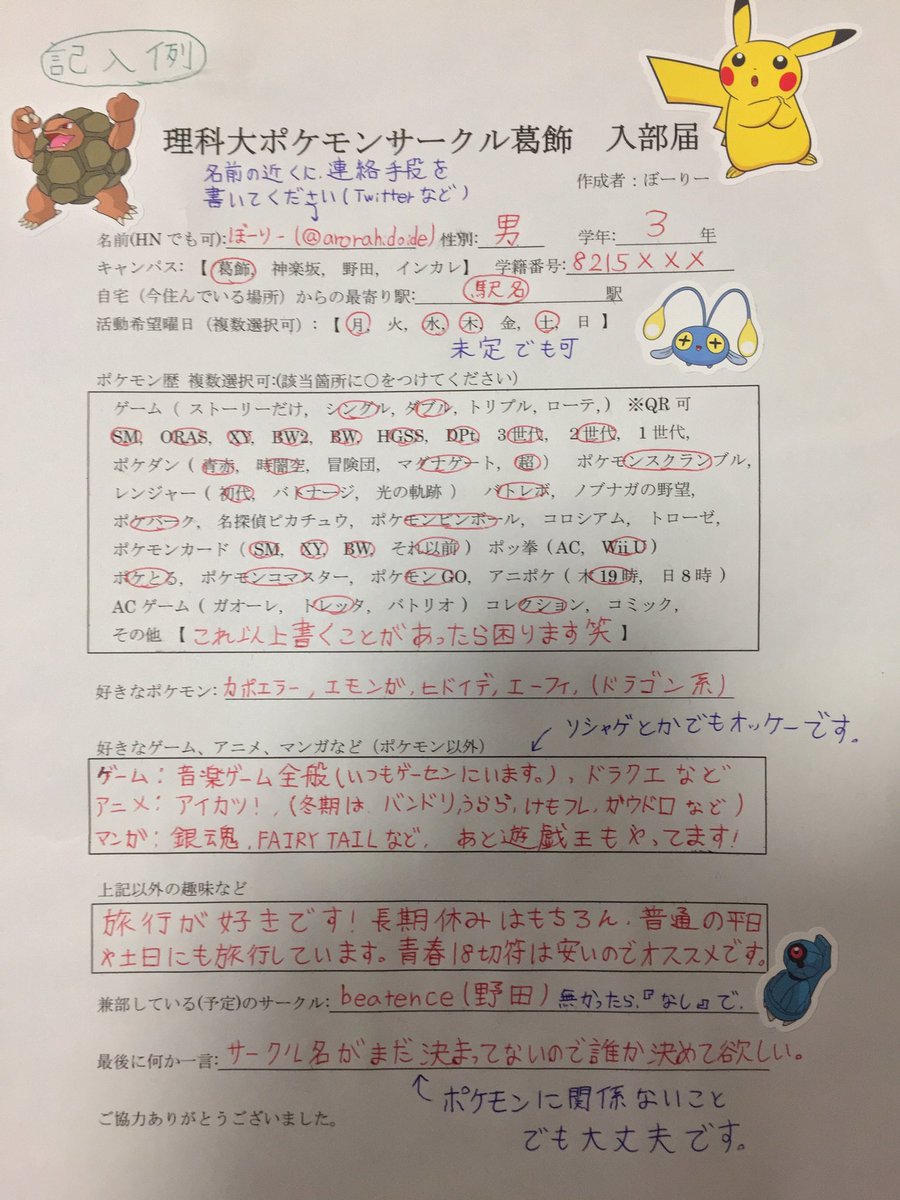 記入例
理科大ポケモンサークル葛飾　入部届
名前の近くに連絡手段を
書いてください(Twitterなど)
作成者：ぼーりー
名前(HNでも可):ぼーりー(@arorah:do:de) 性別: 男 学年: 3 年
キャンパス:【 葛飾, 神楽坂, 野田, インカレ】 学籍番号: 8215×××
自宅（今住んでいる場所）からの最寄り駅: 駅名 駅
活動希望曜日（複数選択可）:【 月, 火, 水, 木, 金, 土, 日 】
未定でも可
ポケモン歴 複数選択可:(該当箇所に○をつけてください)
ゲーム（ ストーリーだけ, シングル, ダブル, トリプル, ローテ, ） ※QR可
SM, ORAS, XY, BW2, BW, HGSS, DPt, 3世代, 2世代, 1世代,
ポケダン（ 青赤, 時闇空, 冒険団, マグナゲート, 超 ） ポケモンスクランブル,
レンジャー（ 初代, バトナージ, 光の軌跡 ） バトレボ, ノブナガの野望,
ポケパーク, 名探偵ピカチュウ, ポケモンピンボール, コロシアム, トローゼ,
ポケモンカード（ SM, XY, BW, それ以前 ） ポッ拳（AC, Wii U）
ポケとる, ポケモンコマスター, ポケモンGO, アニポケ（ 木19時, 日8時 ）
ACゲーム（ ガオーレ, トレッタ, バトリオ ） コレクション, コミック,
その他 【 これ以上書くことがあったら困ります笑 】
好きなポケモン: カポエラー, エモンガ, ヒドイデ, エーフィ, (ドラゴン系)
ソシャゲとかでもオッケーです。
好きなゲーム、アニメ、マンガなど（ポケモン以外）
ゲーム: 音楽ゲーム全般(いつもゲーセンにいます。), ドラクエなど
アニメ: アイカツ!, (冬期は バンドリ, うらら, けもフレ, ガヴドロなど)
マンガ: 銀魂, FAIRY TAILなど, あと遊戯王もやってます!
上記以外の趣味など
旅行が好きです!長期休みはもちろん、普通の平日
や土日にも旅行しています。青春18切符は安いのでオススメです。
兼部している(予定)のサークル: beatence(野田) 無かったら、『なし』で、
最後に何か一言: サークル名がまだ決まってないので誰か決めて欲しい。
ポケモンに関係ないこと
でも大丈夫です。
ご協力ありがとうございました。